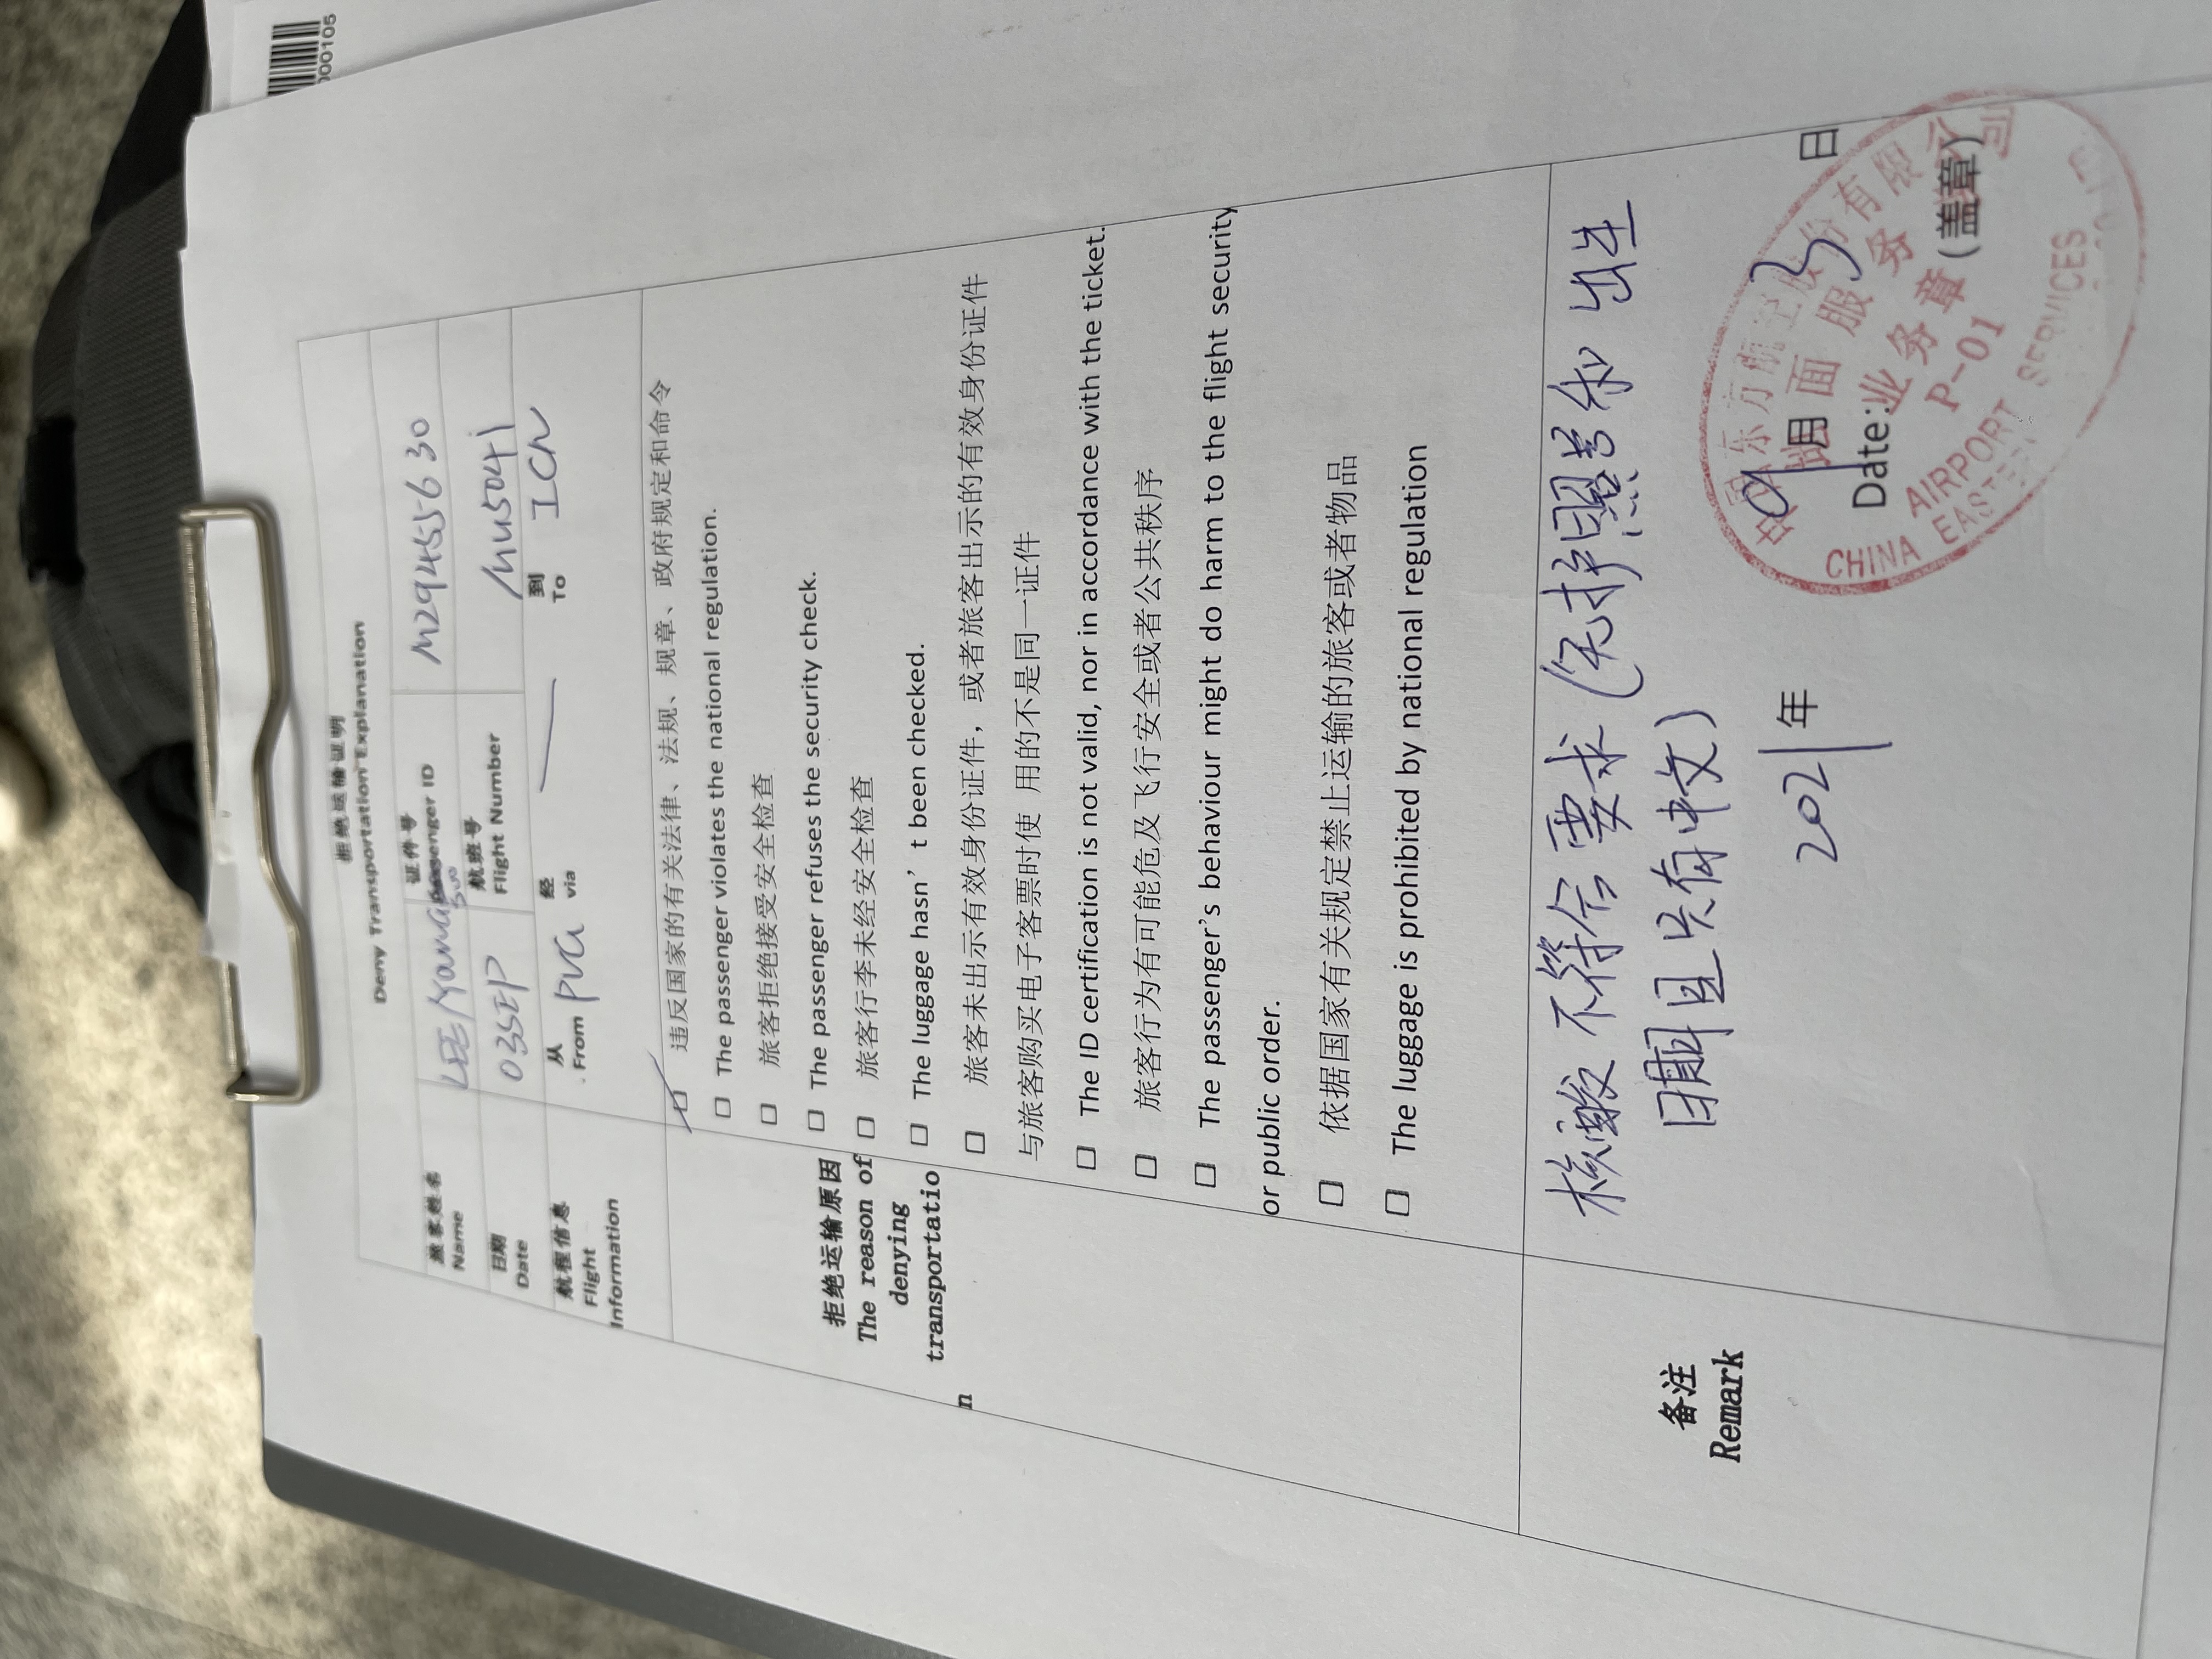 000105
拒绝运输证明
Deny Transportation Explanation
旅客姓名
Name
LEE/Yang
Suo
证件号
Passenger ID
M29455630
日期
Date
03SEP
航班号
Flight Number
MU5041
航程信息
Flight
Information
从
From PVG
经
via
到
To
ICN
拒绝运输原因
The reason of
denying
transportatio
n
□ 违反国家的有关法律、法规、规章、政府规定和命令
□ The passenger violates the national regulation.
□ 旅客拒绝接受安全检查
□ The passenger refuses the security check.
□ 旅客行李未经安全检查
□ The luggage hasn’ t been checked.
□ 旅客未出示有效身份证件，或者旅客出示的有效身份证件
与旅客购买电子客票时使 用的不是同一证件
□ The ID certification is not valid, nor in accordance with the ticket.
□ 旅客行为有可能危及飞行安全或者公共秩序
□ The passenger’s behaviour might do harm to the flight security
or public order.
□ 依据国家有关规定禁止运输的旅客或者物品
□ The luggage is prohibited by national regulation
备注
Remark
核酸不符合要求(无护照号和出生
日期且只有中文)
2021年 9月 3 日
Date:
(盖章)
中国东方航空股份有限公司
地面服务
业务章
P-01
AIRPORT SERVICES
CHINA EASTERN